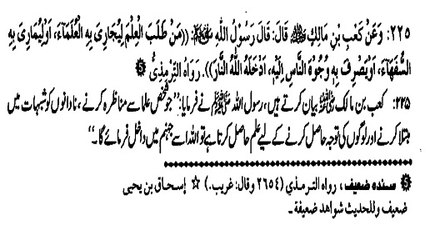 ٢٢٥: وَعَنْ كَعْبِ بْنِ مَالِكٍ ﷺ قَالَ: قَالَ رَسُوْلُ اللّٰهِ ﷺ: ((مَنْ طَلَبَ الْعِلْمَ لِيُجَارِىَ بِهِ الْعُلَمَآءَ، اَوْلِيُمَارِىَ بِهِ
السُّفَهَآءَ، اَوْيَصْرِفَ بِهِ وُجُوْهَ النَّاسِ اِلَيْهِ، اَدْخَلَهُ اللّٰهُ النَّارَ)). رَوَاهُ التِّرْمِذِىُّ
۲۲۵: کعب بن مالک ﷺ بیان کرتے ہیں، رسول اللہ ﷺ نے فرمایا: ”جو شخص علما سے مناظرہ کرنے، نادانوں کو شبہات میں
مبتلا کرنے اور لوگوں کی توجہ حاصل کرنے کے لیے علم حاصل کرتا ہے تو اللہ اسے جہنم میں داخل فرمائے گا۔“
سنده ضعيف، رواه الترمذي (٢٦٥٤ وقال: غريب.) ☆ إسحاق بن يحيى
ضعيف وللحديث شواهد ضعيفة۔